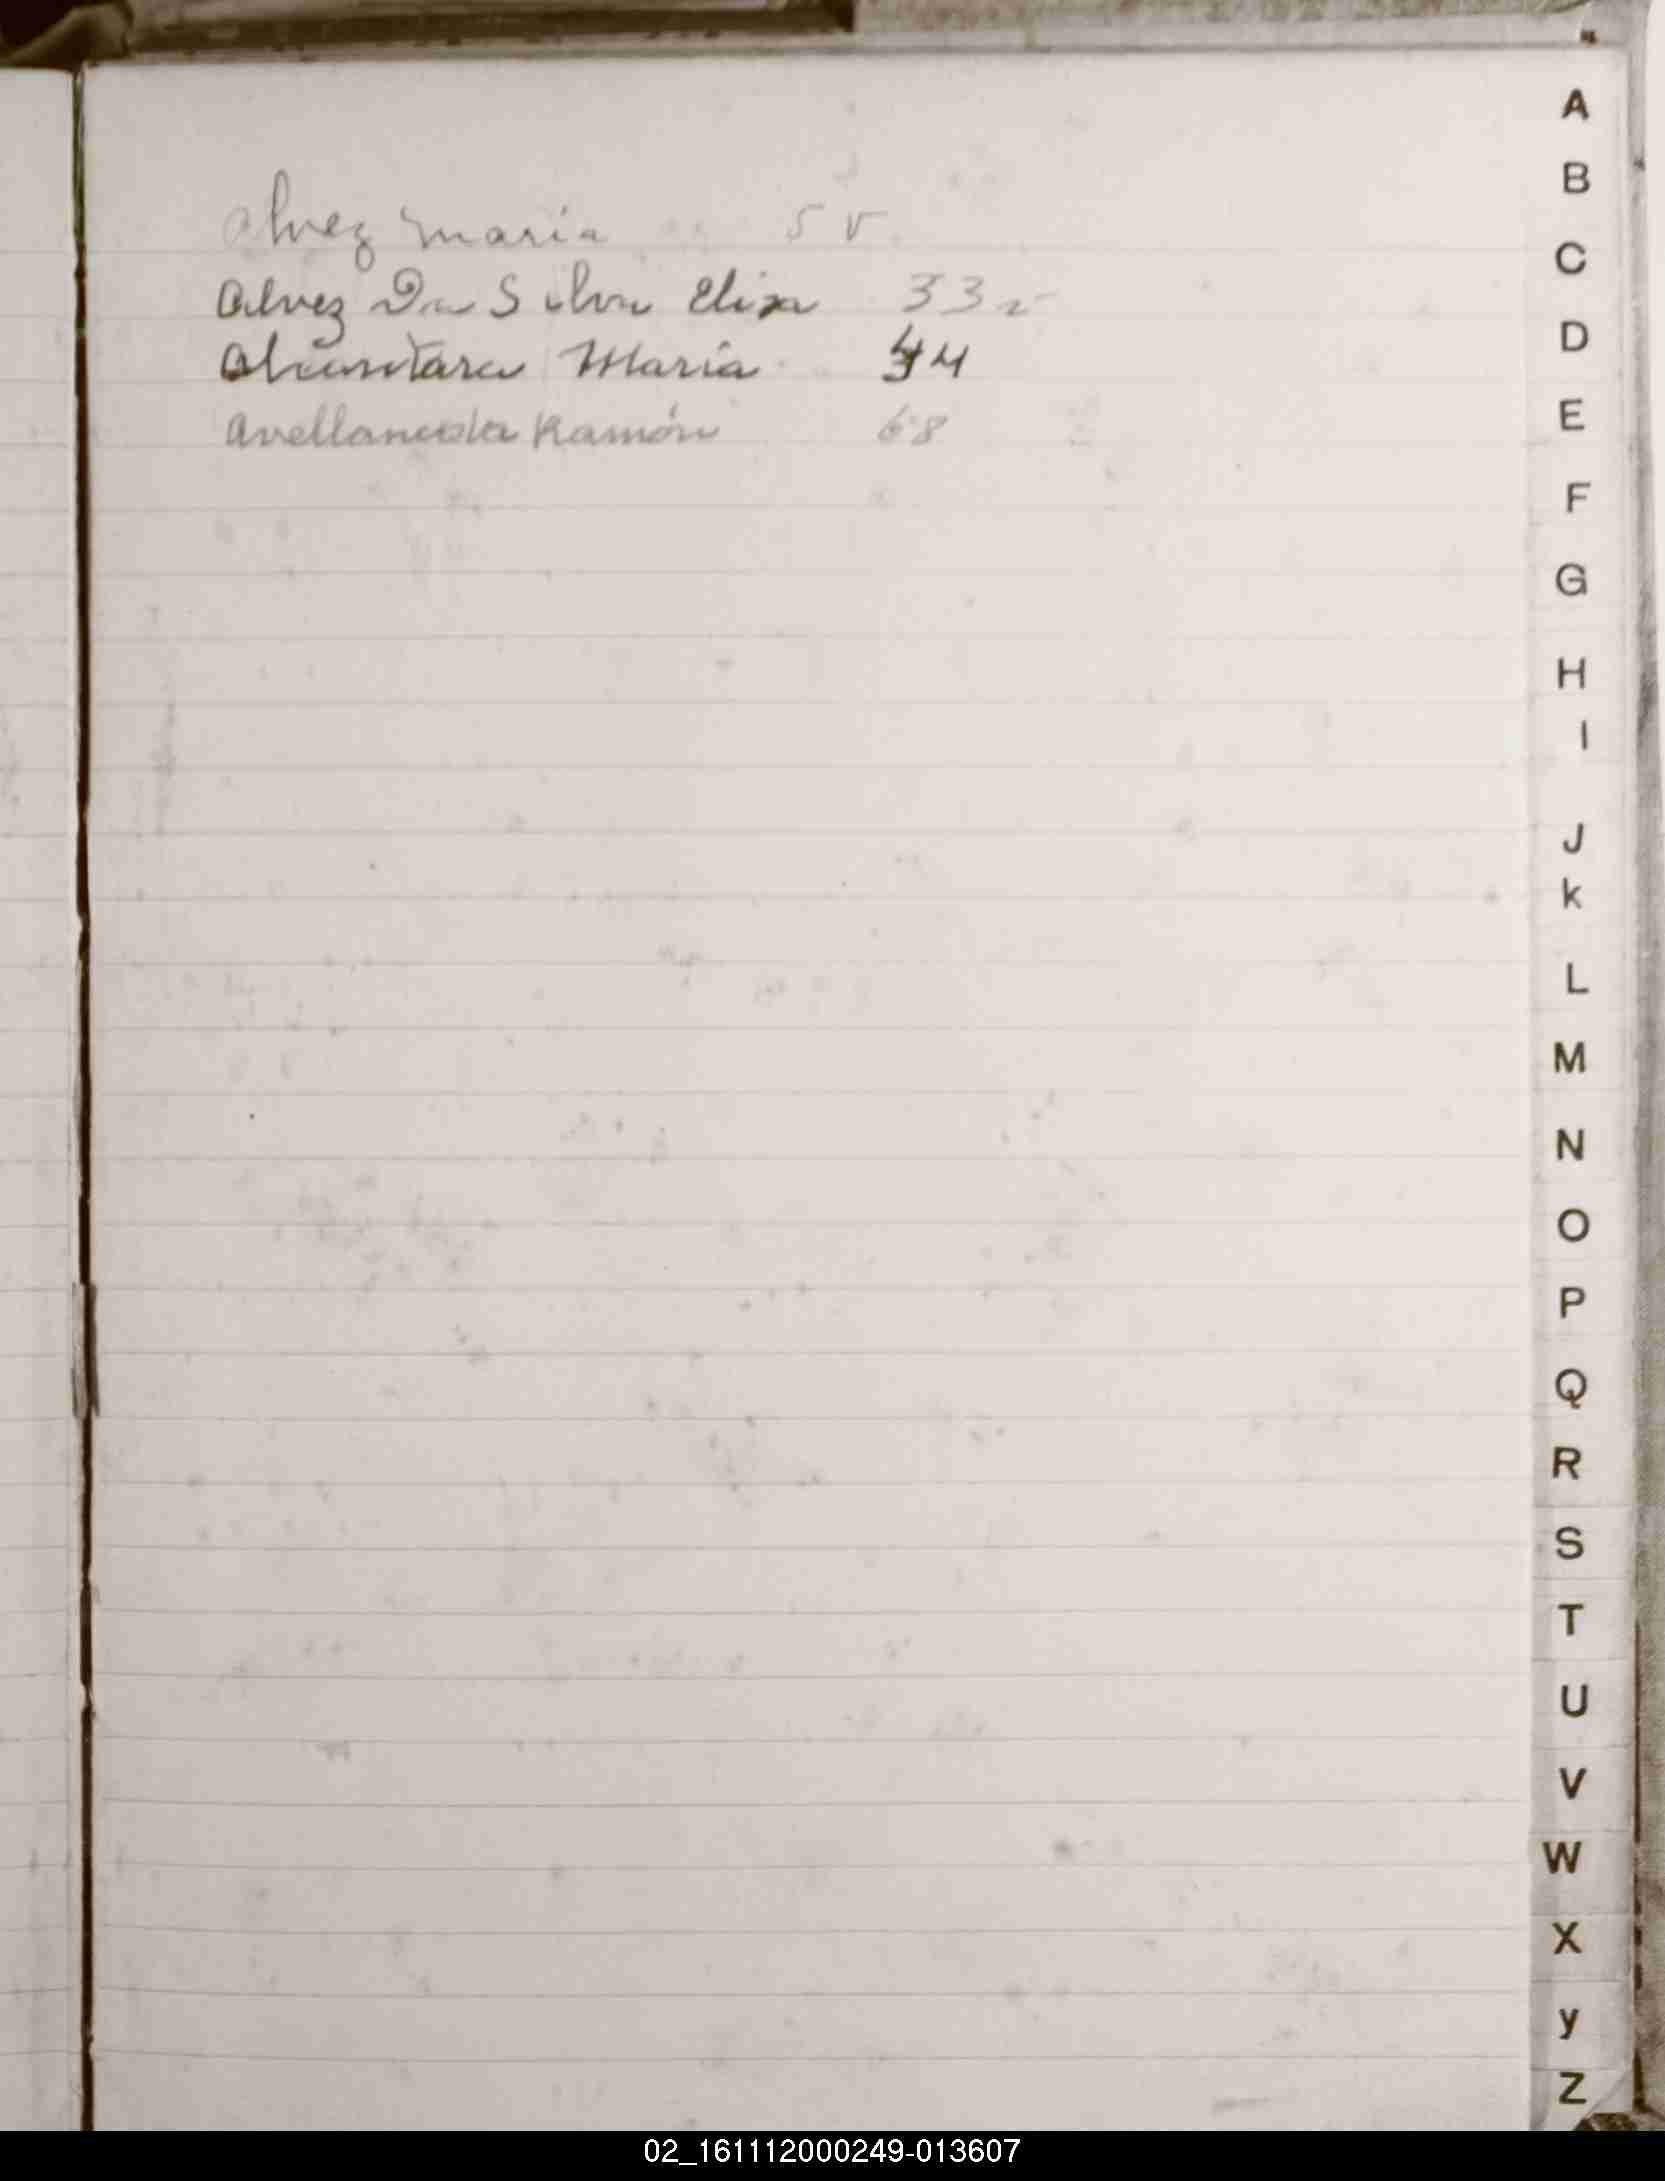 Alvez Maria 5 v
Alvez Da Silva Eliza 33 v
Alcantara Maria 44
Avellaneda Ramón 68
A
B
C
D
E
F
G
H
I
J
k
L
M
N
O
P
Q
R
S
T
U
V
W
X
y
Z
02_161112000249-013607